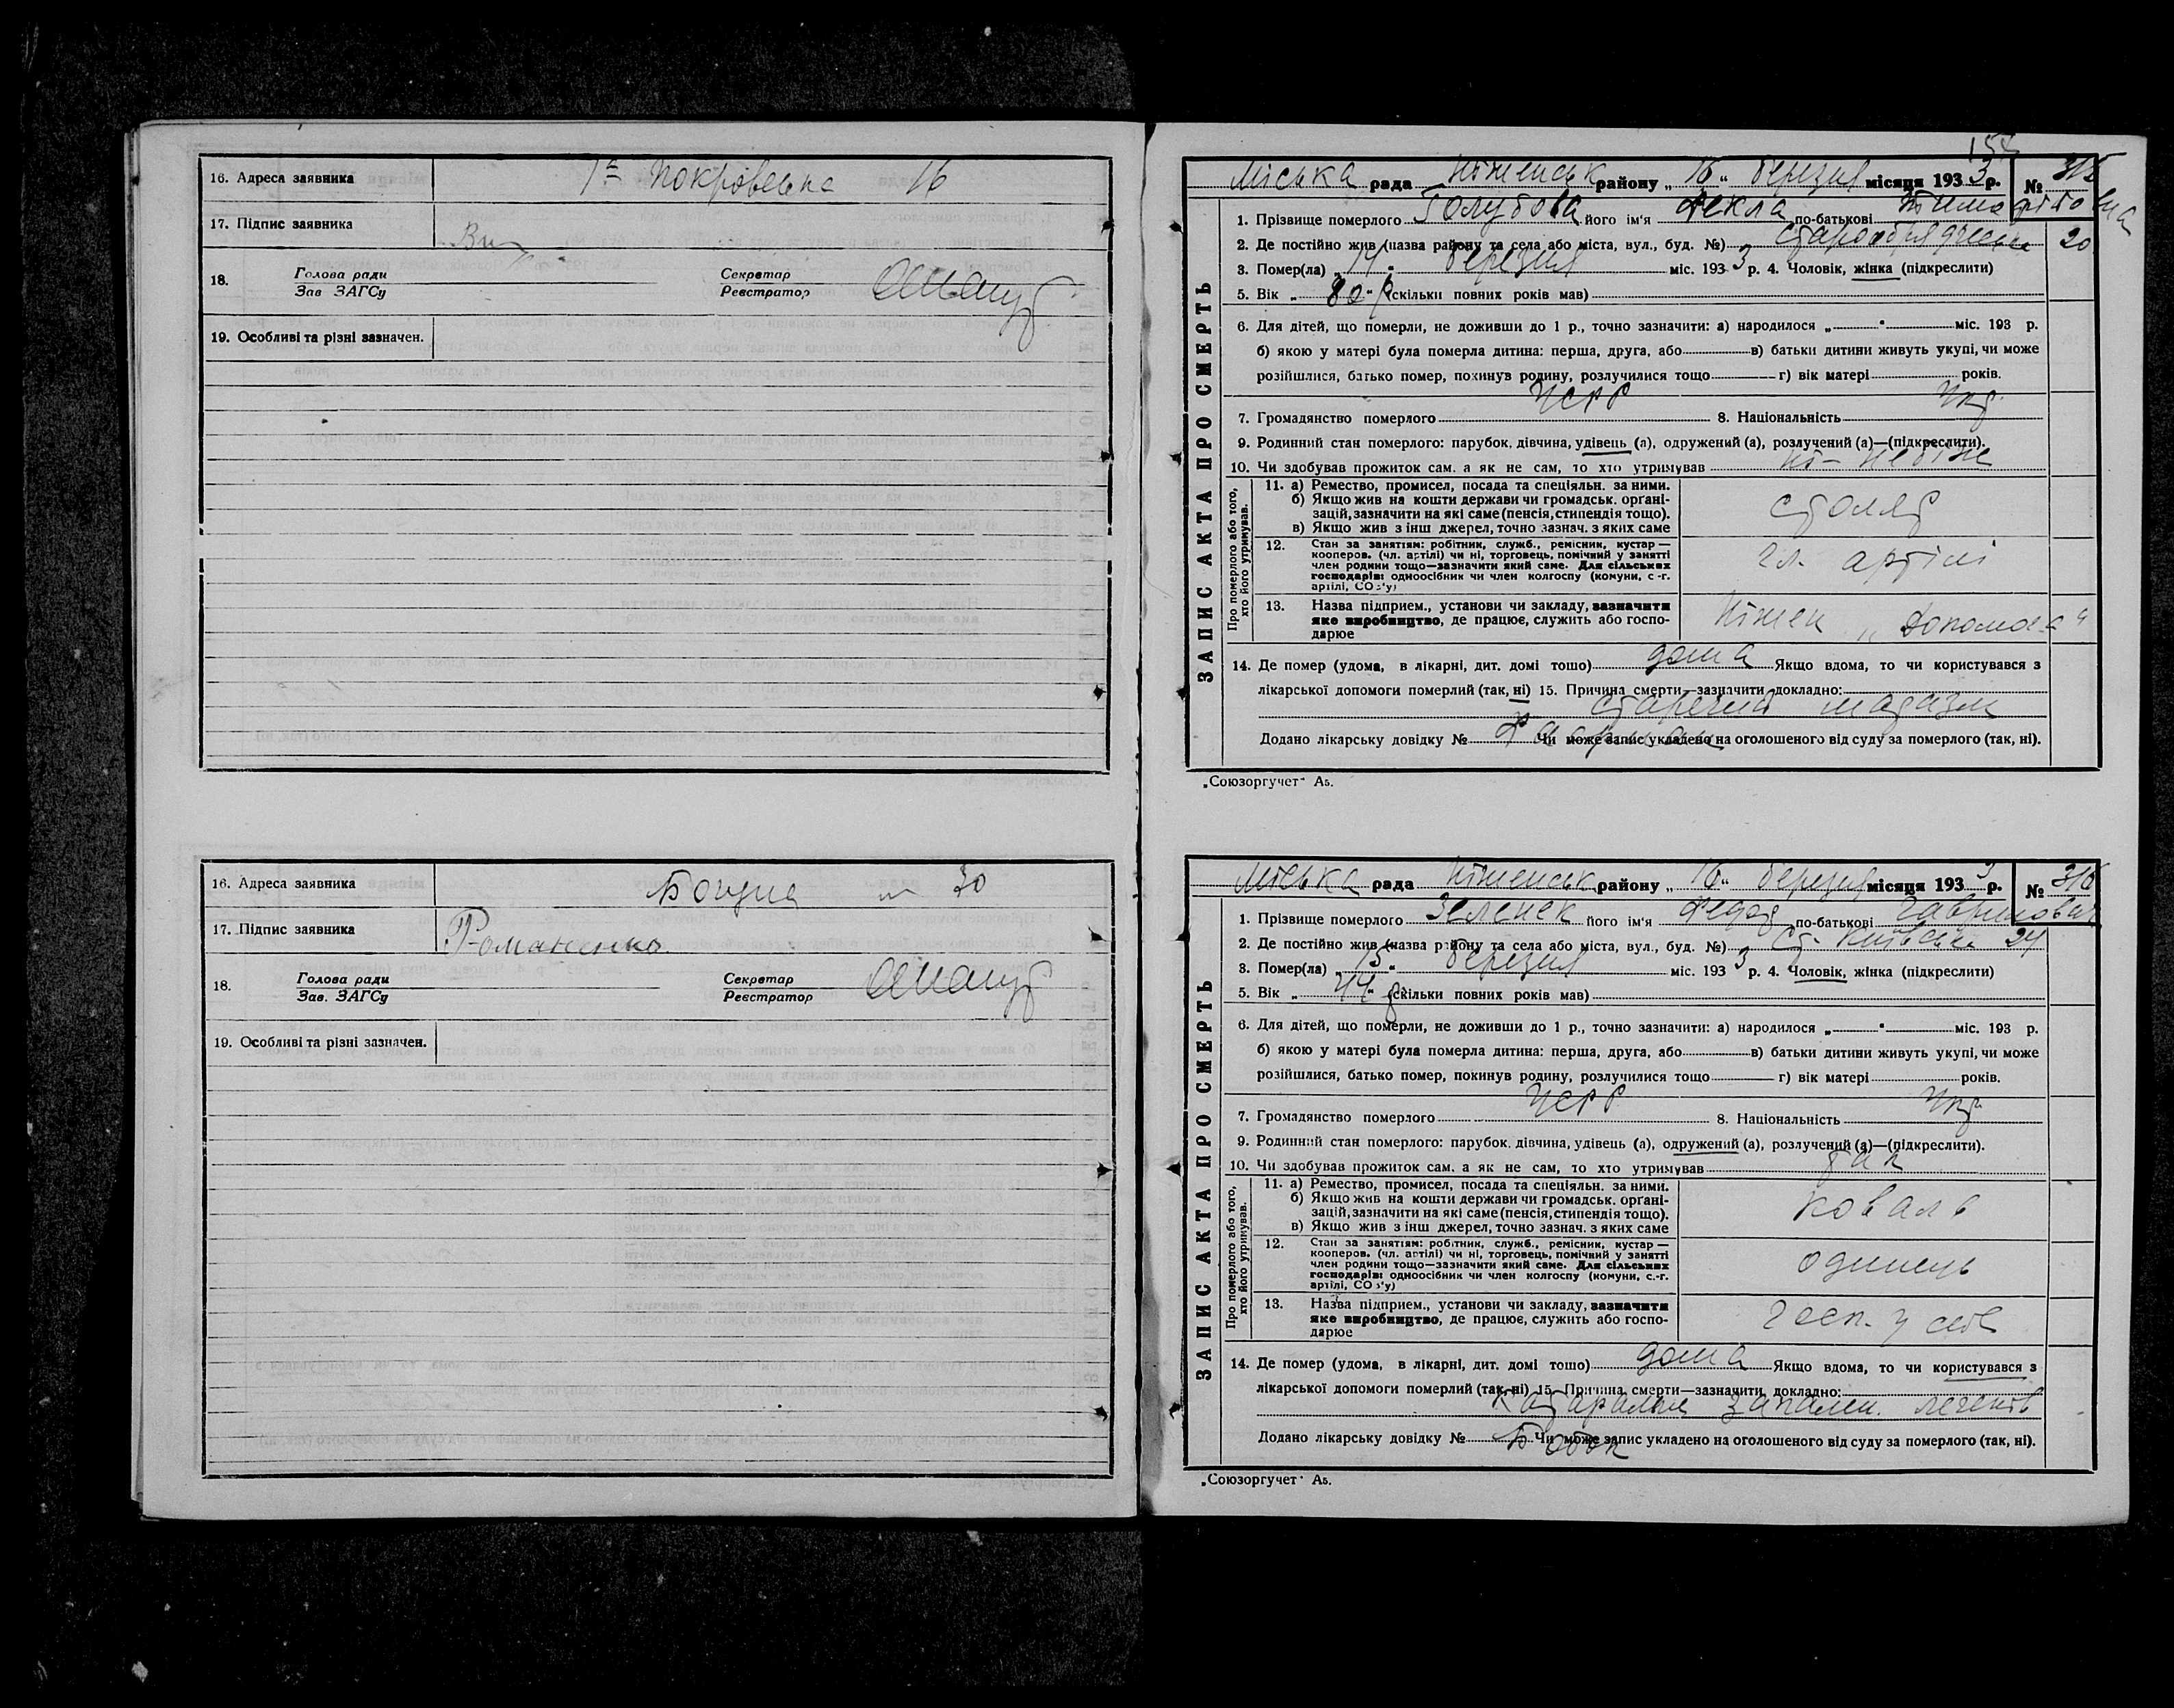 16. Адреса заявника 1ª Покровська 16
17. Підпис заявника
18. Голова ради Секретар
Зав ЗАГСу Реєстратор
19. Особливі та різні зазначен.
16. Адреса заявника 30
17. Підпис заявника Романенко
18. Голова ради Секретар
Зав. ЗАГСу Реєстратор
19. Особливі та різні зазначен.
ЗАПИС АКТА ПРО СМЕРТЬ
Міська рада Ніженськ району „16“ березня місяця 1933 р. №
1. Прізвище померлого Голубова його ім'я Фекла по-батькові
2. Де постійно жив (назва району та села або міста, вул., буд. №) 20
3. Помер(ла) „14“ березня міс. 1933 р. 4. Чоловік, жінка (підкреслити)
5. Вік „80 р“ (скільки повних років мав)
6. Для дітей, що померли, не доживши до 1 р., точно зазначити: а) народилося „ “ міс. 193 р.
б) якою у матері була померла дитина: перша, друга, або в) батьки дитини живуть укупі, чи може
розійшлися, батько помер, покинув родину, розлучилися тощо г) вік матері років.
7. Громадянство померлого УСРР 8. Національність Укр.
9. Родинний стан померлого: парубок, дівчина, удівець (а), одружений (а), розлучений (а)—(підкреслити).
10. Чи здобував прожиток сам, а як не сам, то хто утримував ні-
Про померлого або того, хто його утримував.
11. а) Ремество, промисел, посада та спеціяльн. за ними.
б) Якщо жив на кошти держави чи громадськ. орґані-
зацій, зазначити на які саме (пенсія, стипендія тощо).
в) Якщо жив з інш джерел, точно зазнач. з яких саме
столяр
12. Стан за заняттям: робітник, служб., ремісник, кустар —
кооперов. (чл. артілі) чи ні, торговець, помічний у занятті
член родини тощо—зазначити який саме. Для сільських
господарів: одноосібник чи член колгоспу (комуни, с.-г.
артілі, СОЗ'у)
чл. артілі
13. Назва підприєм., установи чи закладу, зазначити
яке виробництво, де працює, служить або госпо-
дарює
Ніжен „Допомога“
14. Де помер (удома, в лікарні, дит. домі тошо) дома Якщо вдома, то чи користувався з
лікарської допомоги померлий (так, ні) 15. Причина смерти—зазначити докладно:
старечий маразм
Додано лікарську довідку № Чи може запис укладено на оголошеного від суду за померлого (так, ні).
„Союзоргучет“ А5.
ЗАПИС АКТА ПРО СМЕРТЬ
Міська рада Ніженськ району „16“ березня місяця 1933 р. № 316
1. Прізвище померлого Зеленек його ім'я Федор по-батькові Гаврилович
2. Де постійно жив (назва району та села або міста, вул., буд. №) Ст- Київська 24
3. Помер(ла) „15“ березня міс. 1933 р. 4. Чоловік, жінка (підкреслити)
5. Вік „44 р“ (скільки повних років мав)
6. Для дітей, що померли, не доживши до 1 р., точно зазначити: а) народилося „ “ міс. 193 р.
б) якою у матері була померла дитина: перша, друга, або в) батьки дитини живуть укупі, чи може
розійшлися, батько помер, покинув родину, розлучилися тощо г) вік матері років.
7. Громадянство померлого УСРР 8. Національність Укр
9. Родинний стан померлого: парубок, дівчина, удівець (а), одружений (а), розлучений (а)—(підкреслити).
10. Чи здобував прожиток сам, а як не сам, то хто утримував так
Про померлого або того, хто його утримував.
11. а) Ремество, промисел, посада та спеціяльн. за ними.
б) Якщо жив на кошти держави чи громадськ. орґані-
зацій, зазначити на які саме (пенсія, стипендія тощо).
в) Якщо жив з інш джерел, точно зазнач. з яких саме
коваль
12. Стан за заняттям: робітник, служб., ремісник, кустар —
кооперов. (чл. артілі) чи ні, торговець, помічний у занятті
член родини тощо—зазначити який саме. Для сільських
господарів: одноосібник чи член колгоспу (комуни, с.-г.
артілі, СОЗ'у)
одинець
13. Назва підприєм., установи чи закладу, зазначити
яке виробництво, де працює, служить або госпо-
дарює
госп. у себе
14. Де помер (удома, в лікарні, дит. домі тошо) дома Якщо вдома, то чи користувався з
лікарської допомоги померлий (так, ні) 15. Причина смерти—зазначити докладно:
Катаральне запален. легенів
Додано лікарську довідку № Чи може запис укладено на оголошеного від суду за померлого (так, ні).
„Союзоргучет“ А5.